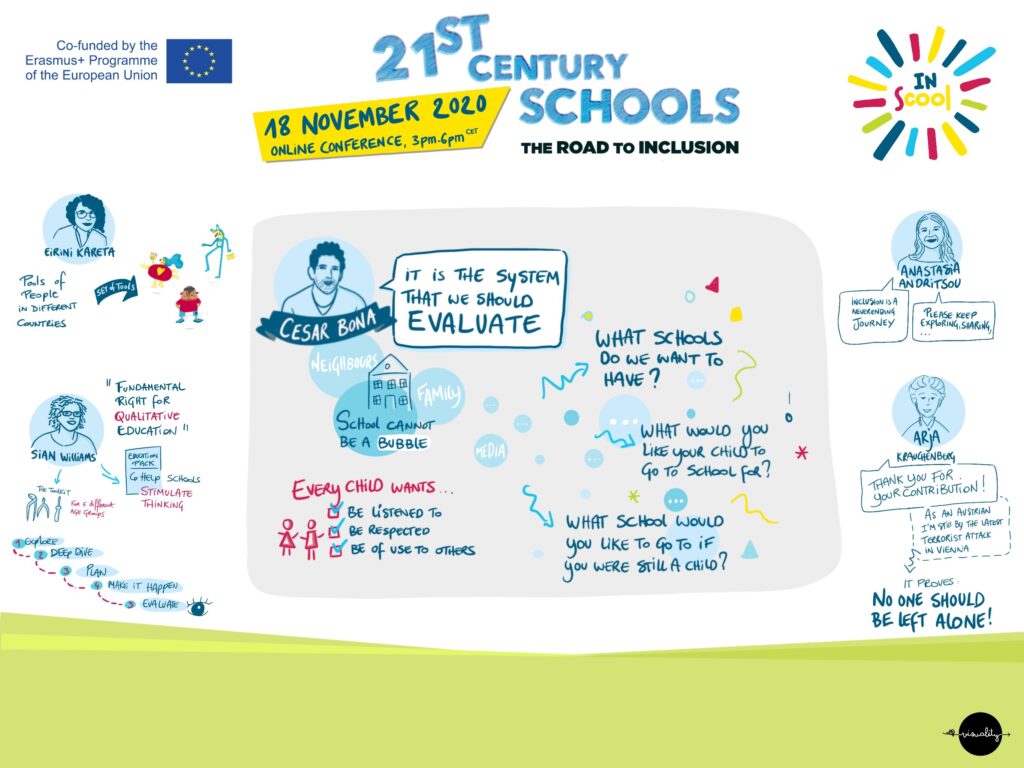 Co-funded by the
Erasmus+ Programme
of the European Union
21ST
CENTURY
SCHOOLS
THE ROAD TO INCLUSION
18 NOVEMBER 2020
ONLINE CONFERENCE, 3pm-6pm CET
IN
Scool
EIRINI KARETA
POOLS OF
PEOPLE
IN DIFFERENT
COUNTRIES
SET OF TOOLS
"FUNDAMENTAL
RIGHT FOR
QUALITATIVE
EDUCATION"
SIAN WILLIAMS
EDUCATION
PACK
TO HELP SCHOOLS
STIMULATE
THINKING
THE TOOLKIT
FOR 5 DIFFERENT
AGE GROUPS
1 EXPLORE
2 DEEP DIVE
3 PLAN
4 MAKE IT HAPPEN
5 EVALUATE
CESAR BONA
IT IS THE SYSTEM
THAT WE SHOULD
EVALUATE
NEIGHBOURS
FAMILY
SCHOOL CANNOT
BE A BUBBLE
MEDIA
EVERY CHILD WANTS...
BE LISTENED TO
BE RESPECTED
BE OF USE TO OTHERS
WHAT SCHOOLS
DO WE WANT TO
HAVE?
WHAT WOULD YOU
LIKE YOUR CHILD TO
GO TO SCHOOL FOR?
WHAT SCHOOL WOULD
YOU LIKE TO GO TO IF
YOU WERE STILL A CHILD?
ANASTASIA
ANDRITSOU
INCLUSION IS A
NEVERENDING
JOURNEY
PLEASE KEEP
EXPLORING, SHARING,
...
ARJA
KRAUCHENBERG
THANK YOU FOR
YOUR CONTRIBUTION!
AS AN AUSTRIAN
I'M STILL BY THE LATEST
TERRORIST ATTACK
IN VIENNA
IT PROVES:
NO ONE SHOULD
BE LEFT ALONE!
visuality